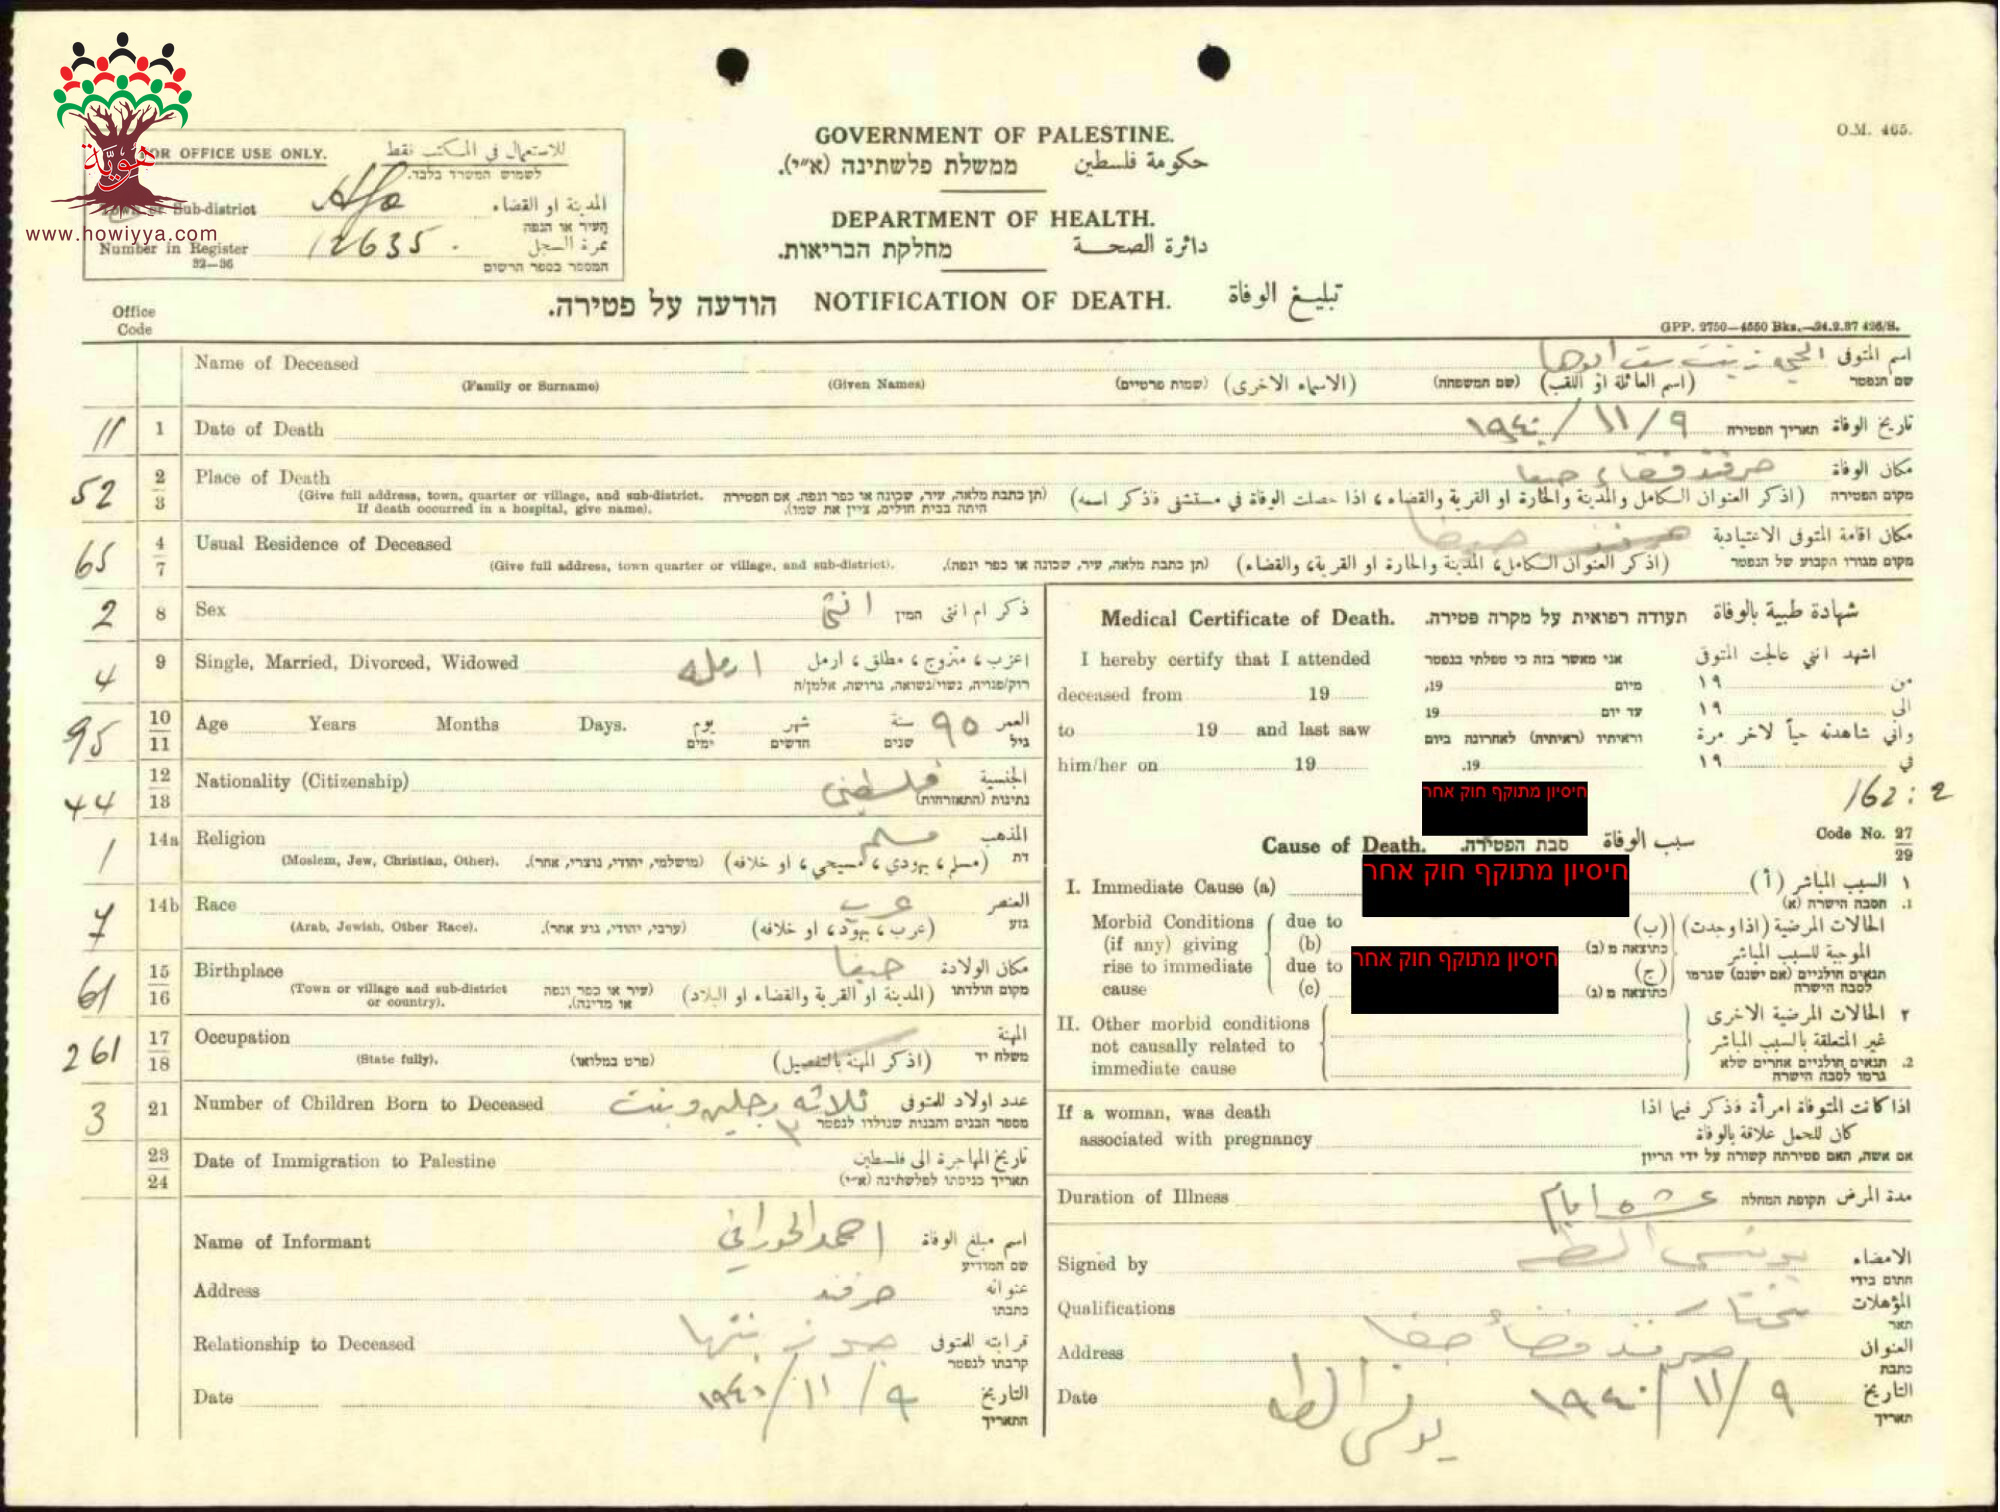 هويّة
www.howiyya.com
O.M. 465.
FOR OFFICE USE ONLY. للاستعمال في المكتب فقط
לשמוש המשרד בלבד.
Town or Sub-district المدينة او القضاء
העיר או הנפה
Number in Register 12635. نمرة السجل
32—36 המספר בספר הרשום
GOVERNMENT OF PALESTINE.
ממשלת פלשתינה (א״י). حكومة فلسطين
DEPARTMENT OF HEALTH.
מחלקת הבריאות. دائرة الصحة
הודעה על פטירה. NOTIFICATION OF DEATH. تبليغ الوفاة
GPP. 2750—4550 Bks.—24.2.37 426/S.
Office
Code
Name of Deceased اسم المتوفى
(Family or Surname) (Given Names) (שמות פרטיים) (الاسماء الاخرى) (שם המשפחה) (اسم العائلة او اللقب) שם הנפטר
11 1 Date of Death ١٩٤٠/١١/٩ תאריך הפטירה تاريخ الوفاة
52 2/3 Place of Death صرفند قضاء حيفا مكان الوفاة
(Give full address, town, quarter or village, and sub-district. If death occurred in a hospital, give name). (תן כתבת מלאה, עיר, שכונה או כפר ונפה. אם הפטירה היתה בבית חולים, ציין את שמו). (اذكر العنوان الكامل والمدينة والحارة او القرية والقضاء، اذا حصلت الوفاة في مستشفى فاذكر اسمه) מקום הפטירה
65 4/7 Usual Residence of Deceased صرفند حيفا مكان اقامة المتوفى الاعتيادية
(Give full address, town quarter or village, and sub-district). (תן כתבת מלאה, עיר, שכונה או כפר ונפה). (اذكر العنوان الكامل، المدينة والحارة او القرية، والقضاء) מקום מגורו הקבוע של הנפטר
2 8 Sex انثى המין ذكر ام انثى
4 9 Single, Married, Divorced, Widowed ارمله اعزب، متزوج، مطلق، ارمل
רוק/פנויה, נשוי/נשואה, גרושה, אלמן/ה
95 10/11 Age Years Months Days. يوم شهر سنة ٩٥ العمر
ימים חדשים שנים גיל
44 12/13 Nationality (Citizenship) فلسطيني الجنسية
נתינות (התאזרחות)
1 14a Religion مسلم المذهب
(Moslem, Jew, Christian, Other). (מושלמי, יהודי, נוצרי, אחר). (مسلم، يهودي، مسيحي، او خلافه) דת
7 14b Race عرب العنصر
(Arab, Jewish, Other Race). (ערבי, יהודי, גזע אחר). (عرب، يهود، او خلافه) גזע
61 15/16 Birthplace حيفا مكان الولادة
(Town or village and sub-district or country). (עיר או כפר ונפה או מדינה). (المدينة او القرية والقضاء او البلاد) מקום הולדתו
261 17/18 Occupation المهنة
(State fully). (פרט במלואו) (اذكر المهنة بالتفصيل) משלח יד
3 21 Number of Children Born to Deceased ثلاثه رجلين وبنت عدد اولاد للمتوفى
٣ מספר הבנים והבנות שנולדו לנפטר
23/24 Date of Immigration to Palestine تاريخ المهاجرة الى فلسطين
תאריך כניסתו לפלשתינה (א״י)
Name of Informant احمد الحوراني اسم مبلغ الوفاة
שם המודיע
Address صرفند عنوانه
כתבתו
Relationship to Deceased قرابته للمتوفى
קרבתו לנפטר
Date ١٩٤٠/١١/٩ التاريخ
התאריך
Medical Certificate of Death. תעודה רפואית על מקרה פטירה. شهادة طبية بالوفاة
I hereby certify that I attended אני מאשר בזה כי טפלתי בנפטר اشهد انني عالجت المتوفى
deceased from 19 מיום 19, من ١٩
to 19 and last saw עד יום 19 الى ١٩
וראיתיו (ראיתיה) לאחרונה ביום واني شاهدته حياً لآخر مرة
him/her on 19 19. في ١٩
חיסיון מתוקף חוק אחר
162:2
Cause of Death. סבת הפטירה. سبب الوفاة Code No. 27/29
I. Immediate Cause (a) חיסיון מתוקף חוק אחר السبب المباشر (أ) ١
הסבה הישרה (א) 1.
Morbid Conditions (if any) giving rise to immediate cause due to (b) due to (c)
חיסיון מתוקף חוק אחר
الحالات المرضية (اذا وجدت) الموجبة للسبب المباشر (ب) (ج)
כתוצאה מ (ב) כתוצאה מ (ג) תנאים חולניים (אם ישנם) שגרמו לסבה הישרה
II. Other morbid conditions not causally related to immediate cause
٢ الحالات المرضية الاخرى غير المتعلقة بالسبب المباشر
2. תנאים חולניים אחרים שלא גרמו לסבה הישרה
If a woman, was death associated with pregnancy اذا كانت المتوفاة امرأة فذكر فيما اذا كان للحمل علاقة بالوفاة
אם אשה, האם פטירתה קשורה על ידי הריון
Duration of Illness عشره ايام תקופת המחלה مدة المرض
Signed by الامضاء
חתום בידי
Qualifications مختار المؤهلات
תאר
Address صرفند قضاء حيفا العنوان
כתבת
Date ١٩٤٠/١١/٩ التاريخ
תאריך